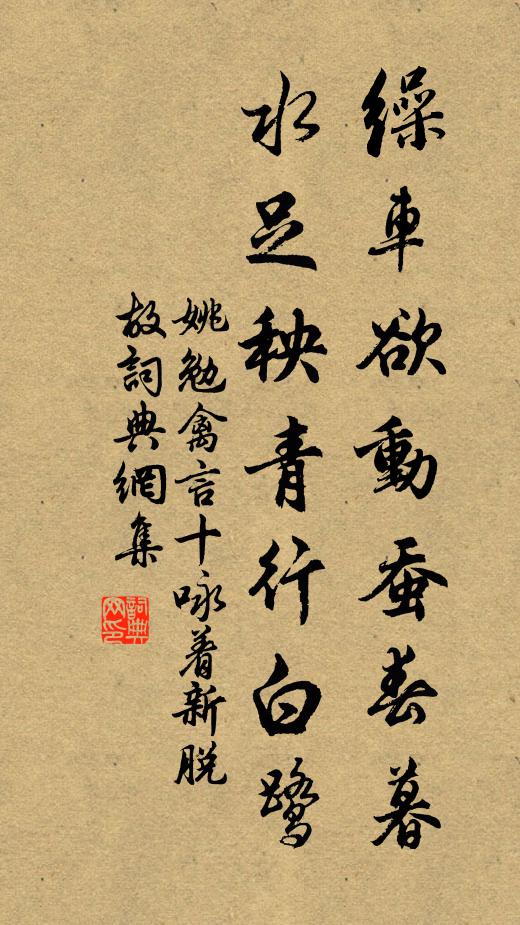 繰車欲動蚕春暮
水足秧青行白鷺
姚勉禽言十咏着新脱
故詞典網集
詞典网印